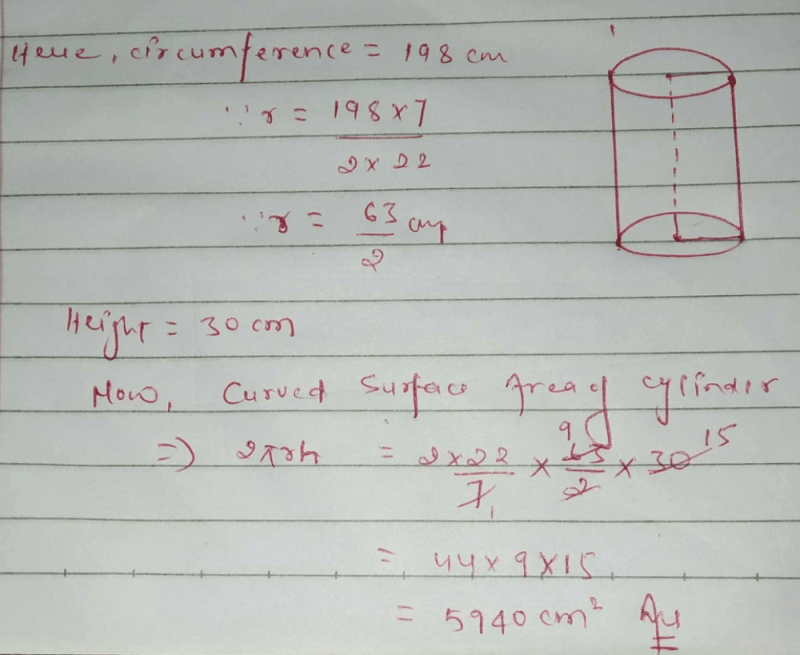 Here, circumference = 198 cm
∵ r = 198 × 7
2 × 22
∵ r = 63 cm
2
Height = 30 cm
Now, Curved Surface Area of cylinder
⇒ 2πrh = 2 × 22 / 7 × 63 / 2 × 30
9 15
1
= 44 × 9 × 15
= 5940 cm² Ans